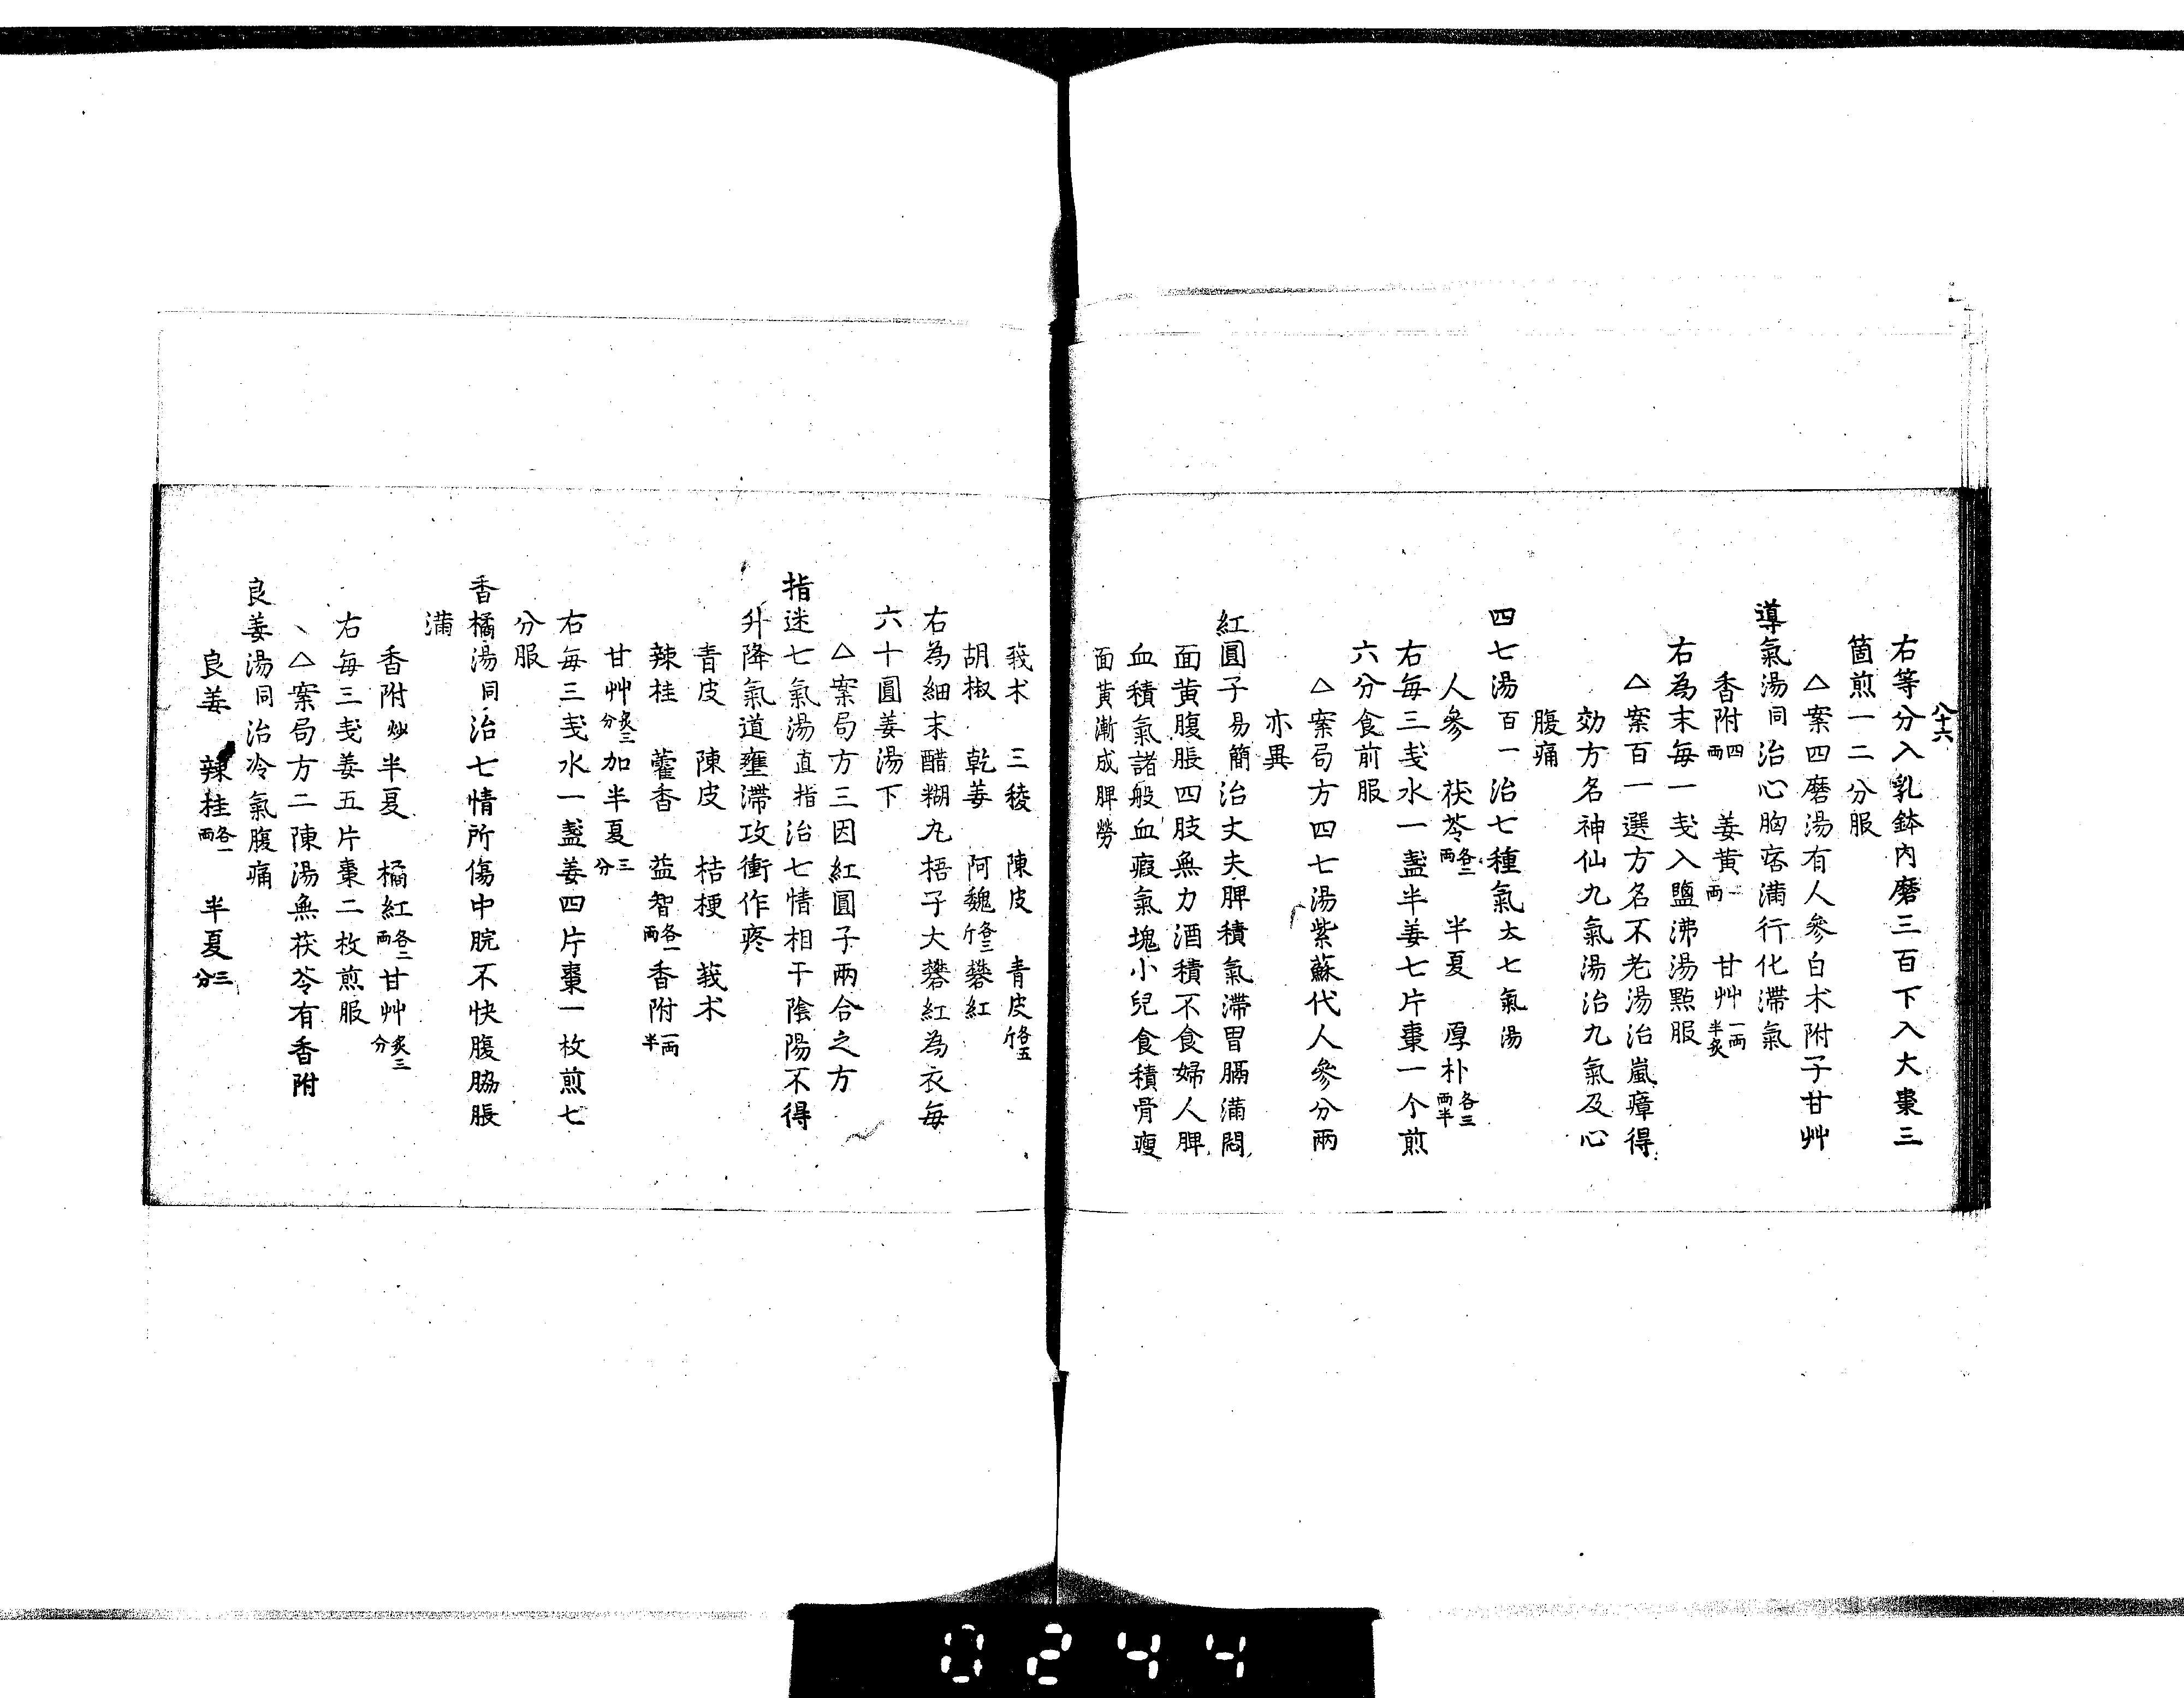 八十六
右等分入乳鉢内磨三百下入大棗三
箇煎一二分服
△案四磨湯有人參白术附子甘艸
導氣湯同治心胸痞滿行化滯氣
香附四兩 姜黄一兩 甘艸一兩半炙
右為末每一戔入鹽沸湯點服
△案百一選方名不老湯治嵐瘴得
効方名神仙九氣湯治九氣及心
腹痛
四七湯百一治七種氣大七氣湯
人參 茯苓各二兩 半夏 厚朴各三兩半
右每三戔水一盞半姜七片棗一个煎
六分食前服
△案局方四七湯紫蘇代人參分兩
亦異
紅圓子易簡治丈夫脾積氣滯胃膈滿悶
面黄腹脹四肢無力酒積不食婦人脾
血積氣諸般血瘕氣塊小兒食積骨瘦
面黄漸成脾勞
莪术 三稜 陳皮 青皮各五斤
胡椒 乾姜 阿魏各三斤礬紅
右為細末醋糊丸梧子大礬紅為衣每
六十圓姜湯下
△案局方三因紅圓子兩合之方
指迷七氣湯直指治七情相干陰陽不得
升降氣道壅滯攻衝作疼
青皮 陳皮 桔梗 莪术
辣桂 藿香 益智各一兩香附一兩半
甘艸炙三分加半夏三分
右每三戔水一盞姜四片棗一枚煎七
分服
香橘湯同治七情所傷中脘不快腹脇脹
滿
香附炒半夏 橘紅各二兩甘艸炙三分
右每三戔姜五片棗二枚煎服
△案局方二陳湯無茯苓有香附
良姜湯同治冷氣腹痛
良姜 辣桂各一兩 半夏三分
0244